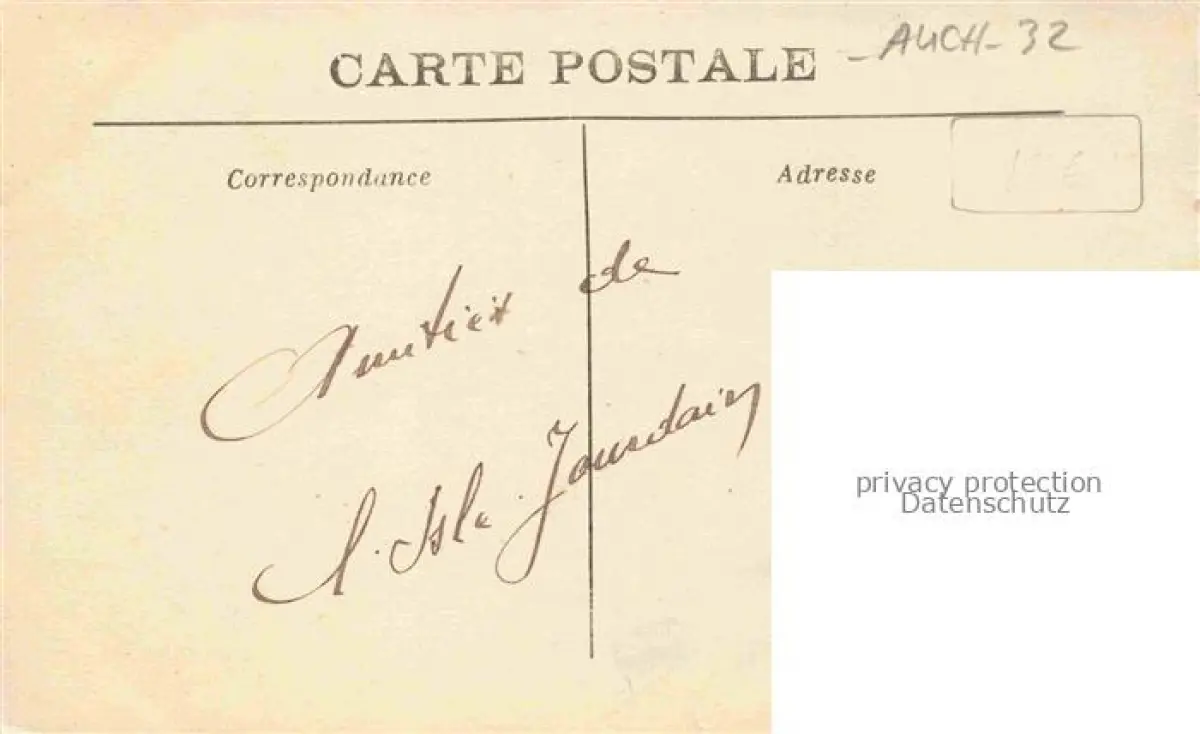 CARTE POSTALE
- AUCH - 32
Correspondance
Adresse
Amitiés de
l'Isle Jourdain
privacy protection
Datenschutz